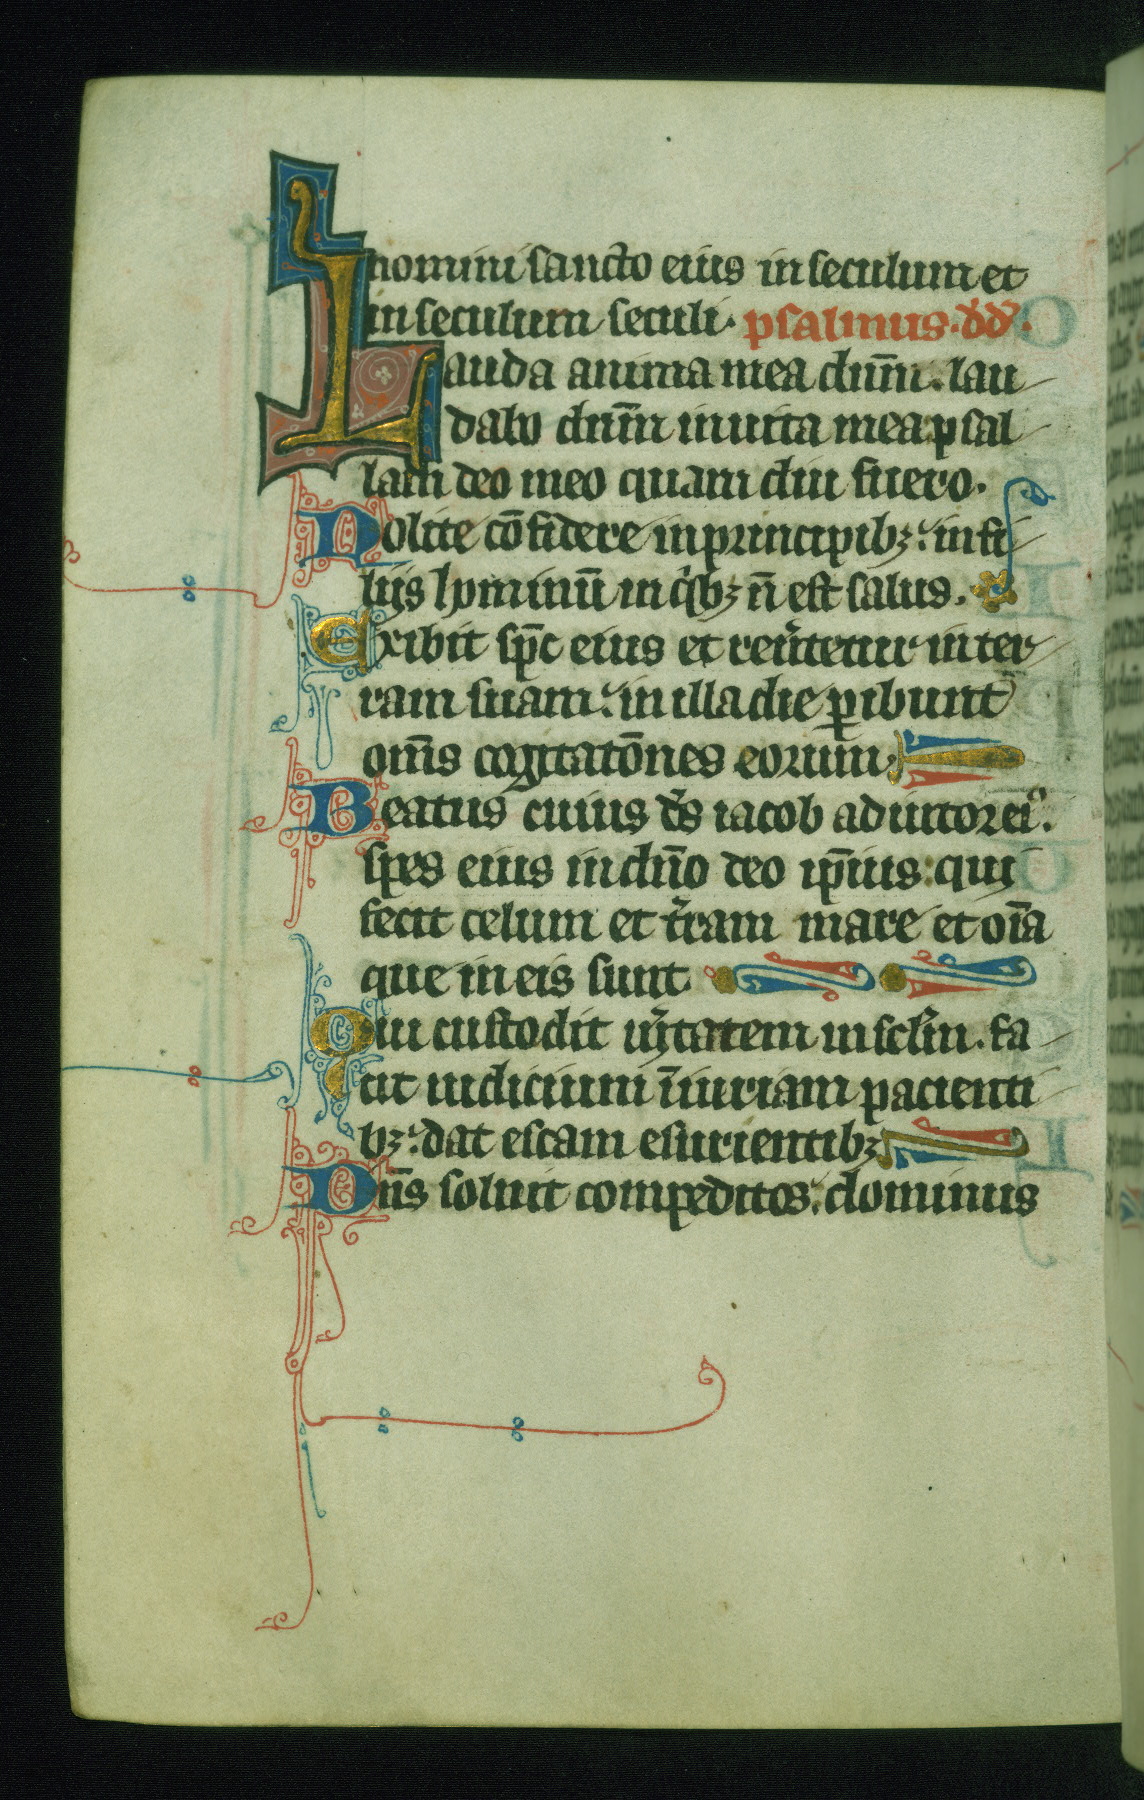 nomini sancto eius in seculum et
in seculum seculi. psalmus .dd̄.
Lauda anima mea dn̄m. lau
dabo dn̄m in uita mea psal
lam deo meo quam diu fuero.
Nolite cōfidere in principibꝫ: in fi
liis hominū in qͥbꝫ n̄ est salus.
Exibit sp̄c eius et reu̾tetur in ter
ram suam: in illa die ꝑibunt
om̄s cogitatōnes eorum.
Beatus cuius ds̄ iacob adiutor eiꝰ.
spes eius in dn̄o deo ip̄ius: qui
fecit celum et t̾ram mare et oīa
que in eis sunt.
Qui custodit u̾itatem in sclm̄. fa
cit iudicium īiuriam pacienti
bꝫ: dat escam esurientibꝫ
Dn̄s soluit compeditos: dominus